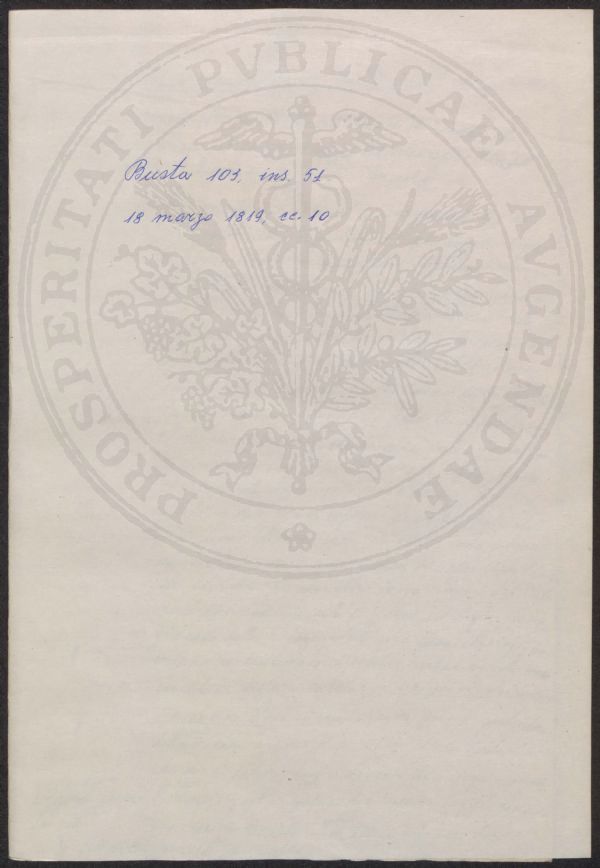 Busta 101, ins. 51
18 marzo 1819, cc. 10
PROSPERITATI PVBLICAE AVGENDAE